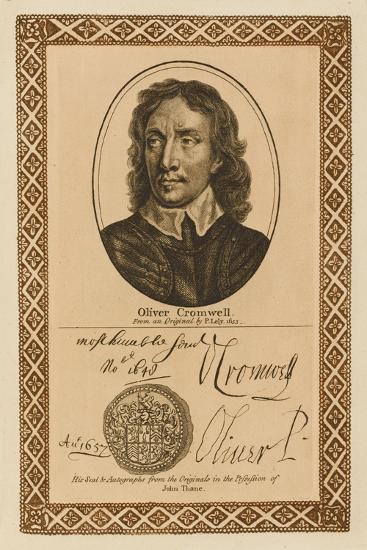 Oliver Cromwell.
From an Original by P. Lely. 1653.
most humble
No 1648 O Cromwell
Au. 1657 Oliver P.
His Seal & Autographs from the Originals in the Possession of
John Thane.